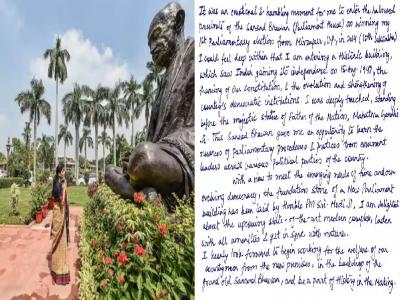 It was an emotional & humbling moment for me to enter the hallowed
precincts of the Sansad Bhavan (Parliament House) on winning my
1st Parliamentary election from Mirzapur, UP, in 2014 (16th Loksabha)
I could feel deep within that I am entering a Historic building,
which saw India gaining its independence on 15 Aug 1947, the
framing of our Constitution, & the evolution and strengthening of
country's democratic institutions. I was deeply touched, standing
before the majestic statue of Father of the Nation, Mahatma Gandhi
Ji. This Sansad Bhavan gave me an opportunity to learn the
nuances of Parliamentary procedures & practices from eminent
leaders across various political parties of the country.
With a view to meet the emerging needs of time and our
evolving democracy, the foundation stone of a New Parliament
building has been laid by Hon'ble PM Shri Modi Ji, I am delighted
about the upcoming state-of-the-art modern complex, laden
with all amenities & yet in sync with nature.
I keenly look forward to begin working for the welfare of our
countrymen from the new premises, in the backdrop of the
proud old Sansad Bhavan, and be a part of History in the Making.